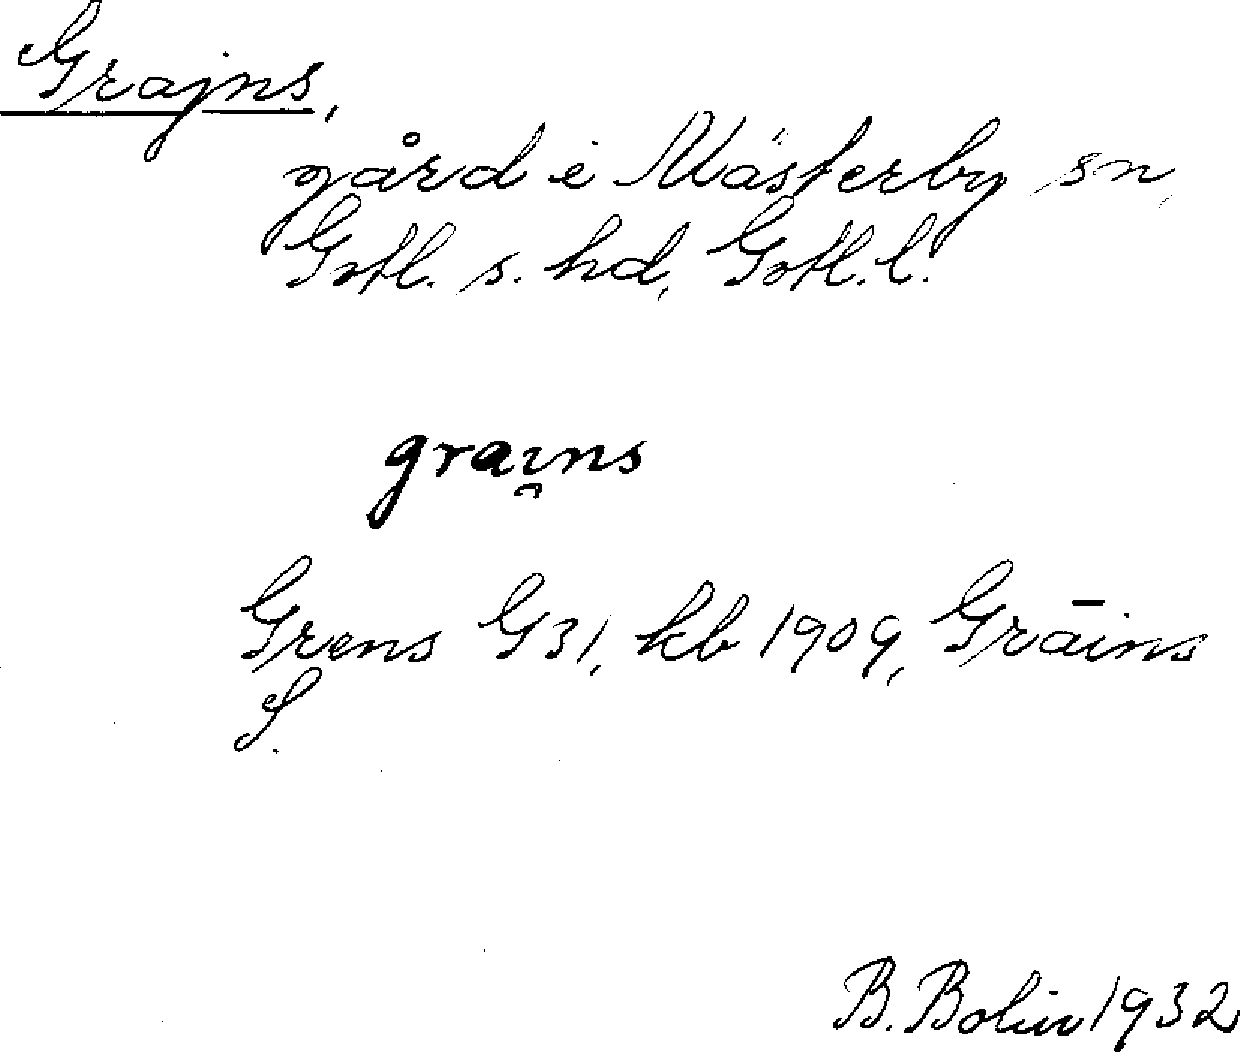 Grajns,
gård i Mästerby sn,
Gotl. s. hd, Gotl. l.
graı̯ns
Grens G31, kb 1909, Grāins
S.
B. Bolin 1932